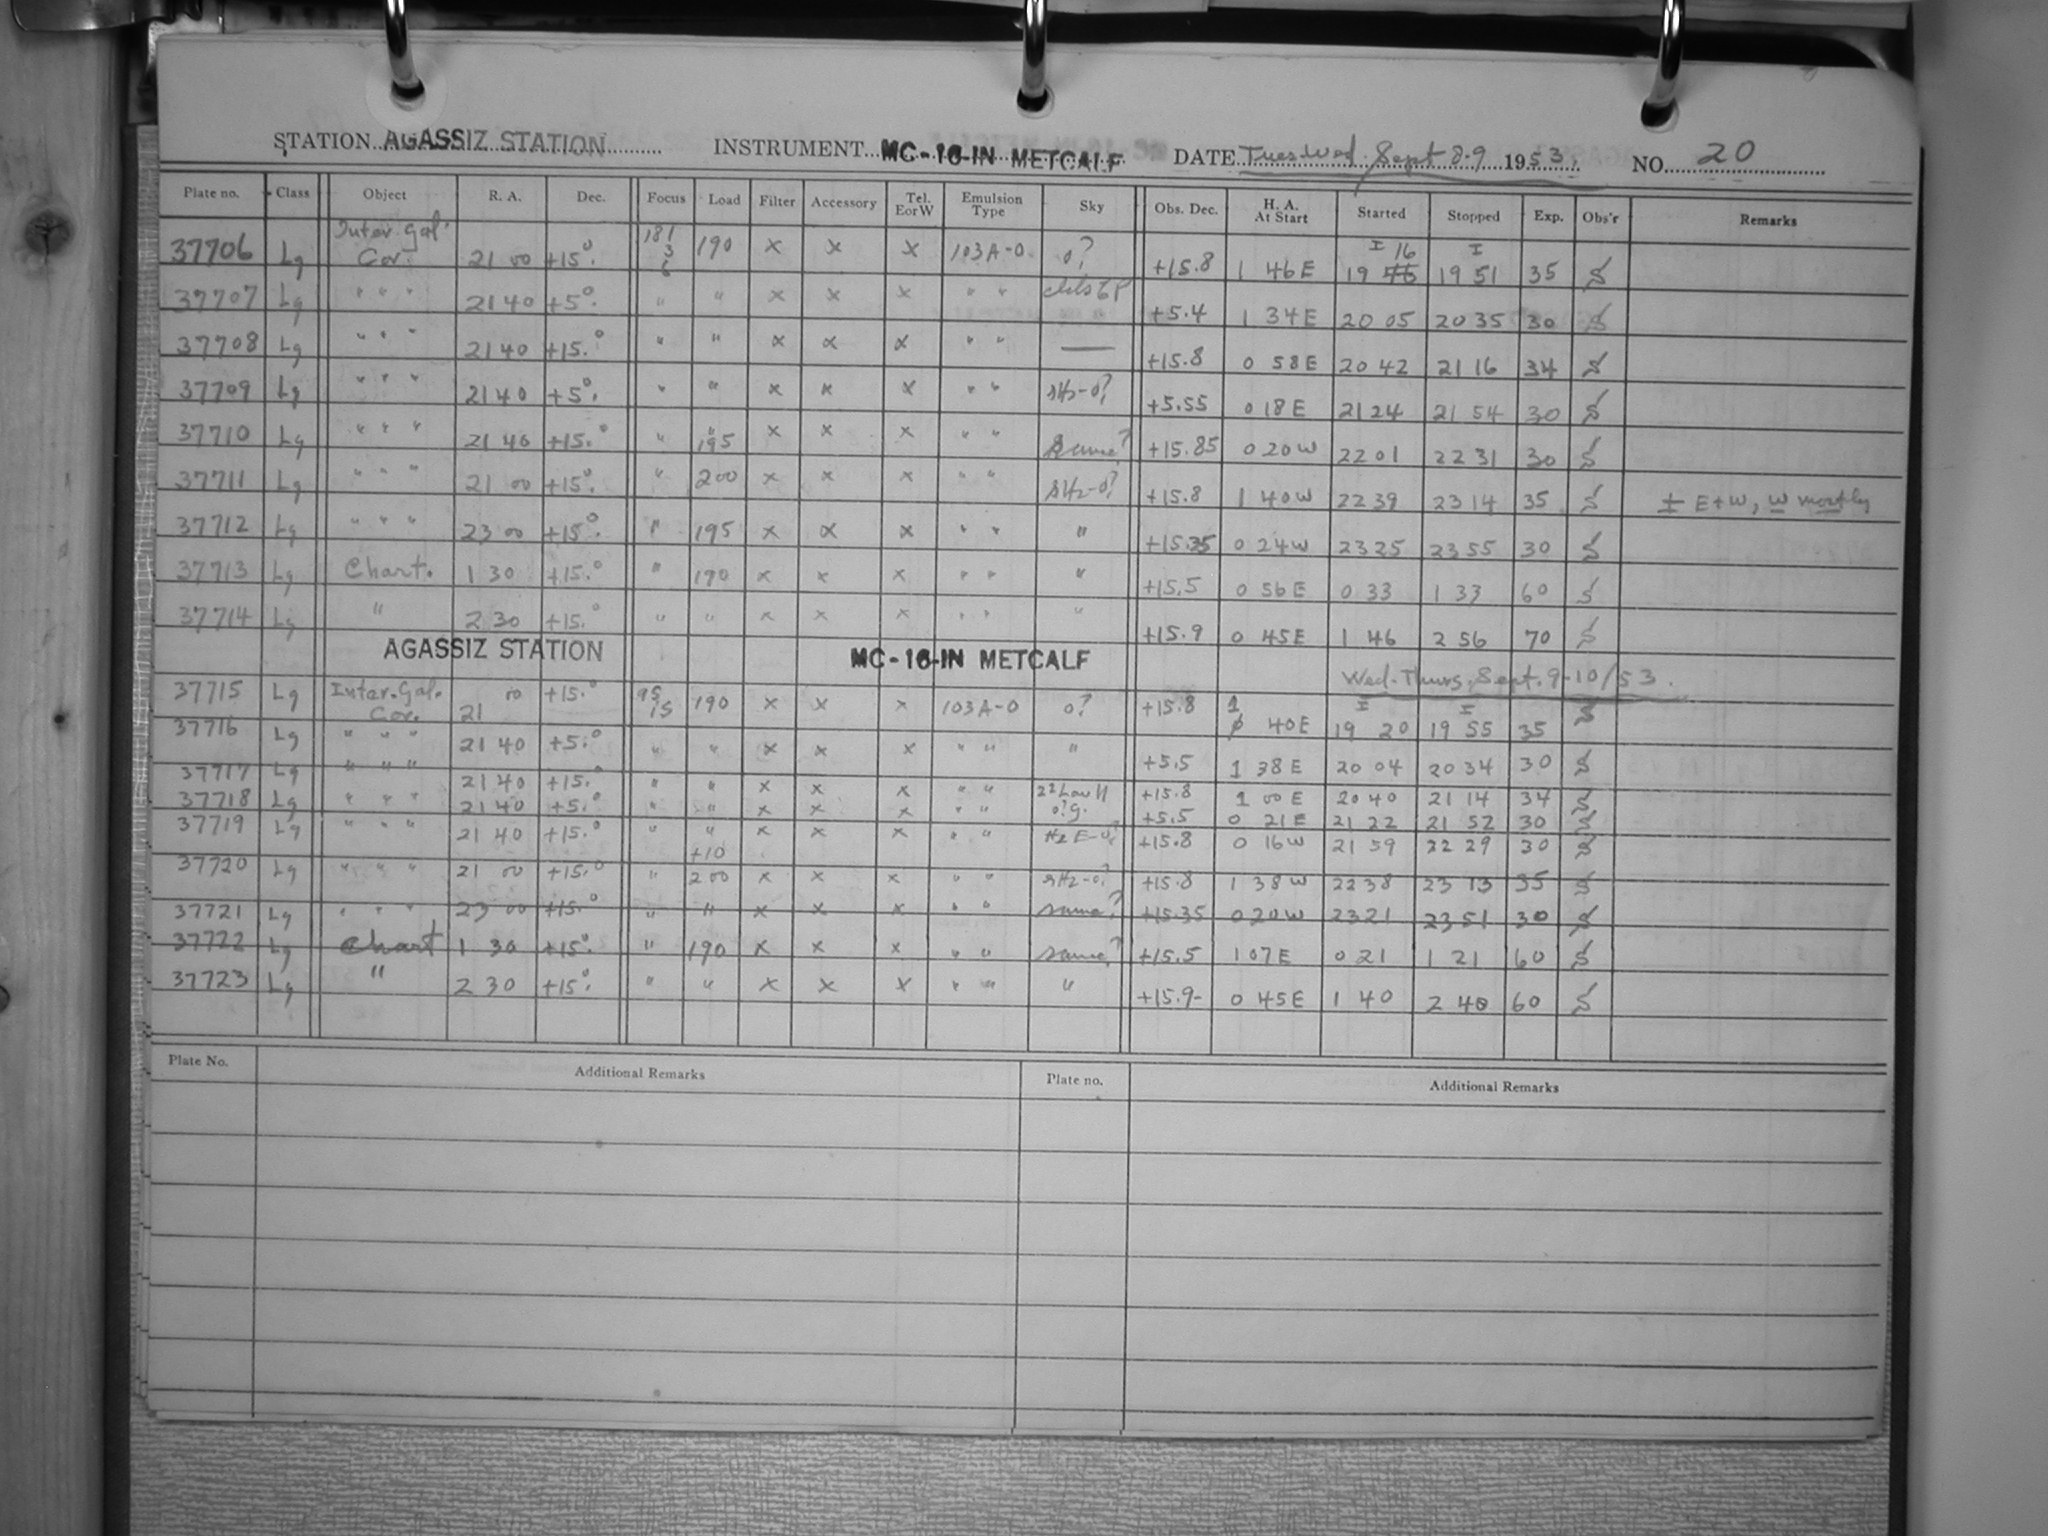 STATION AGASSIZ STATION INSTRUMENT MC-16-IN METCALF DATE Tues-Wed. Sept 8-9 1953. NO. 20
Plate no. Class Object R. A. Dec. Focus Load Filter Accessory Tel. E or W Emulsion Type Sky Obs. Dec. H. A. At Start Started Stopped Exp. Obs'r Remarks
37706 Lg Inter. Gal. Cor. 21 00 +15°. 190 x x x 103A-O o? +15.8 1 46 E I 19 16 I 19 51 35
37707 Lg " " " 21 40 +5°. " " x x x " " +5.4 1 34 E 20 05 20 35 30
37708 Lg " " " 21 40 +15.° " " x x x " " — +15.8 0 58 E 20 42 21 16 34
37709 Lg " " " 21 40 +5°. " " x x x " " sHz-o? +5.55 0 18 E 21 24 21 54 30
37710 Lg " " " 21 40 +15.° " 195 x x x " " Same? +15.85 0 20 W 22 01 22 31 30
37711 Lg " " " 21 00 +15°. " 200 x x x " " sHz-o? +15.8 1 40 W 22 39 23 14 35 ± E+W, W mostly
37712 Lg " " " 23 00 +15°. " 195 x x x " " " +15.35 0 24 W 23 25 23 55 30
37713 Lg Chart. 1 30 +15.° " 190 x x x " " " +15.5 0 56 E 0 33 1 33 60
37714 Lg " 2 30 +15.° " " x x x " " " +15.9 0 45 E 1 46 2 56 70
AGASSIZ STATION MC-16-IN METCALF Wed-Thurs. Sept. 9-10/53.
37715 Lg Inter. Gal. Cor. 21 00 +15.° 95 15 190 x x x 103A-O o? +15.8 1 40 E I 19 20 I 19 55 35
37716 Lg " " " 21 40 +5.° " " x x x " " " +5.5 1 38 E 20 04 20 34 30
37717 Lg " " " 21 40 +15.° " " x x x " " +15.8 1 00 E 20 40 21 14 34
37718 Lg " " " 21 40 +5.° " " x x x " " +5.5 0 21 E 21 22 21 52 30
37719 Lg " " " 21 40 +15.° " " +10 x x x " " Hz E-o? +15.8 0 16 W 21 59 22 29 30
37720 Lg " " " 21 00 +15.° " 200 x x x " " sHz-o? +15.8 1 38 W 22 38 23 13 35
37721 Lg " " " 23 00 +15.° " " x x x " " same? +15.35 0 20 W 23 21 23 51 30
37722 Lg Chart 1 30 +15°. " 190 x x x " " same? +15.5 1 07 E 0 21 1 21 60
37723 Lg " 2 30 +15°. " " x x x " " " +15.9- 0 45 E 1 40 2 40 60
Plate No. Additional Remarks Plate no. Additional Remarks